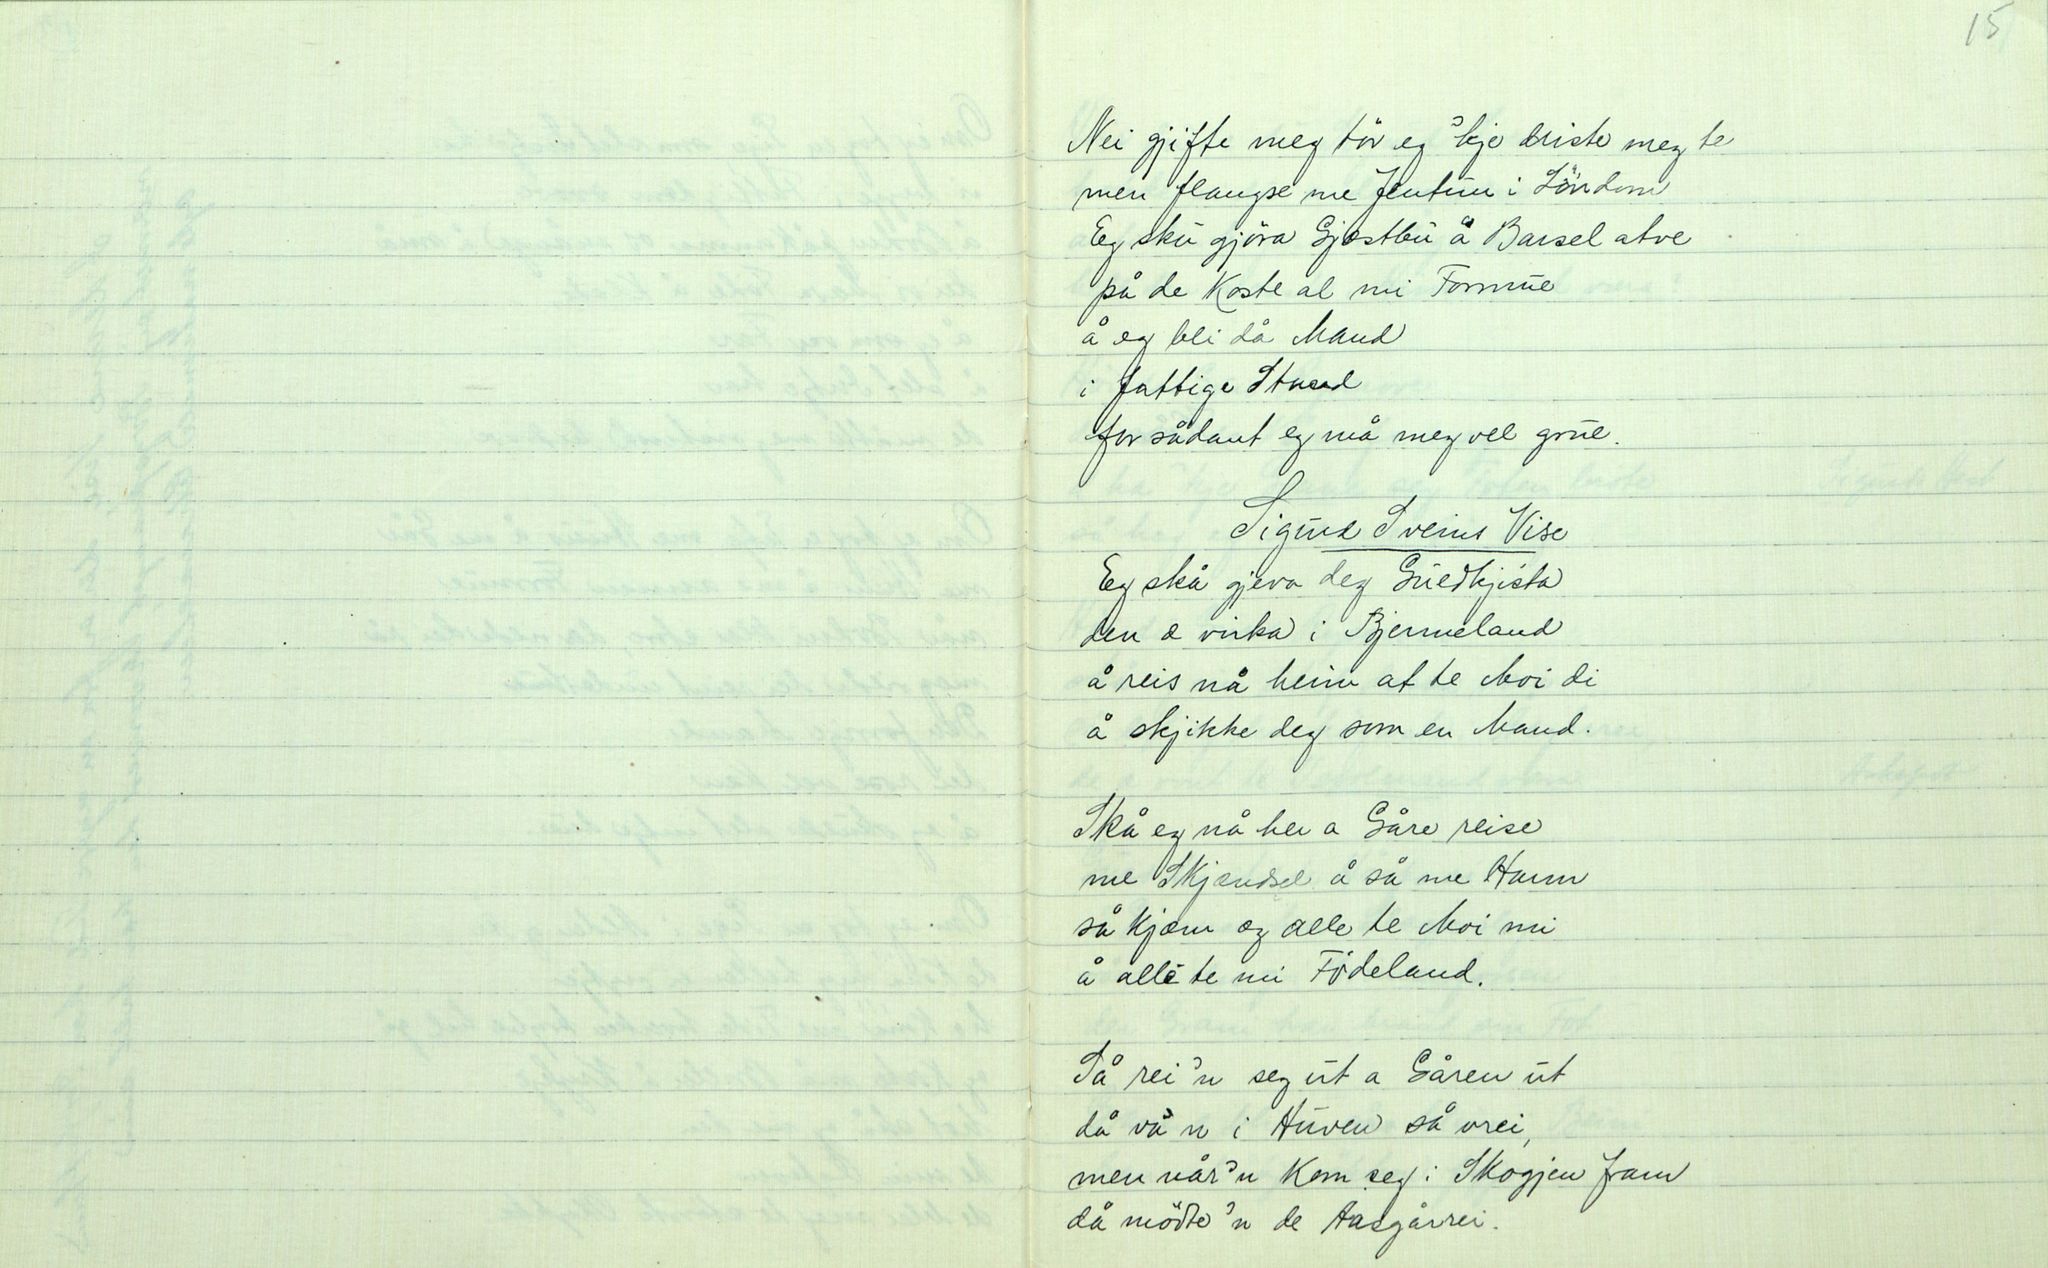 15
Nei gjifte meg tör eg 'kje driste meg te
men flangse me Jentun i Löndom
Eg skū gjöra Gjæstbū å Barsel atve
på de Koste al mi Formūe
å eg bli då Mand
i fattige Stand
for sådant eg må meg vel grūe.
Sigūrd Sveins Vise
Eg skå gjeva deg Gūedkjista
den æ virka i Bjermeland
å reis nå heim at te Moi di
å skjikke deg som en Mand.
Skå eg nå her a Gåre reise
me Skjændsel å så me Harm
så kjæm eg alle te Moi mi
å alle te mi Födeland.
Så rei'n seg ūt a Gåren ūt
då vå'n i Hūven så vrei,
men når'n Kom seg i Skogjen fram
då mödte'n de Aasgårrei.